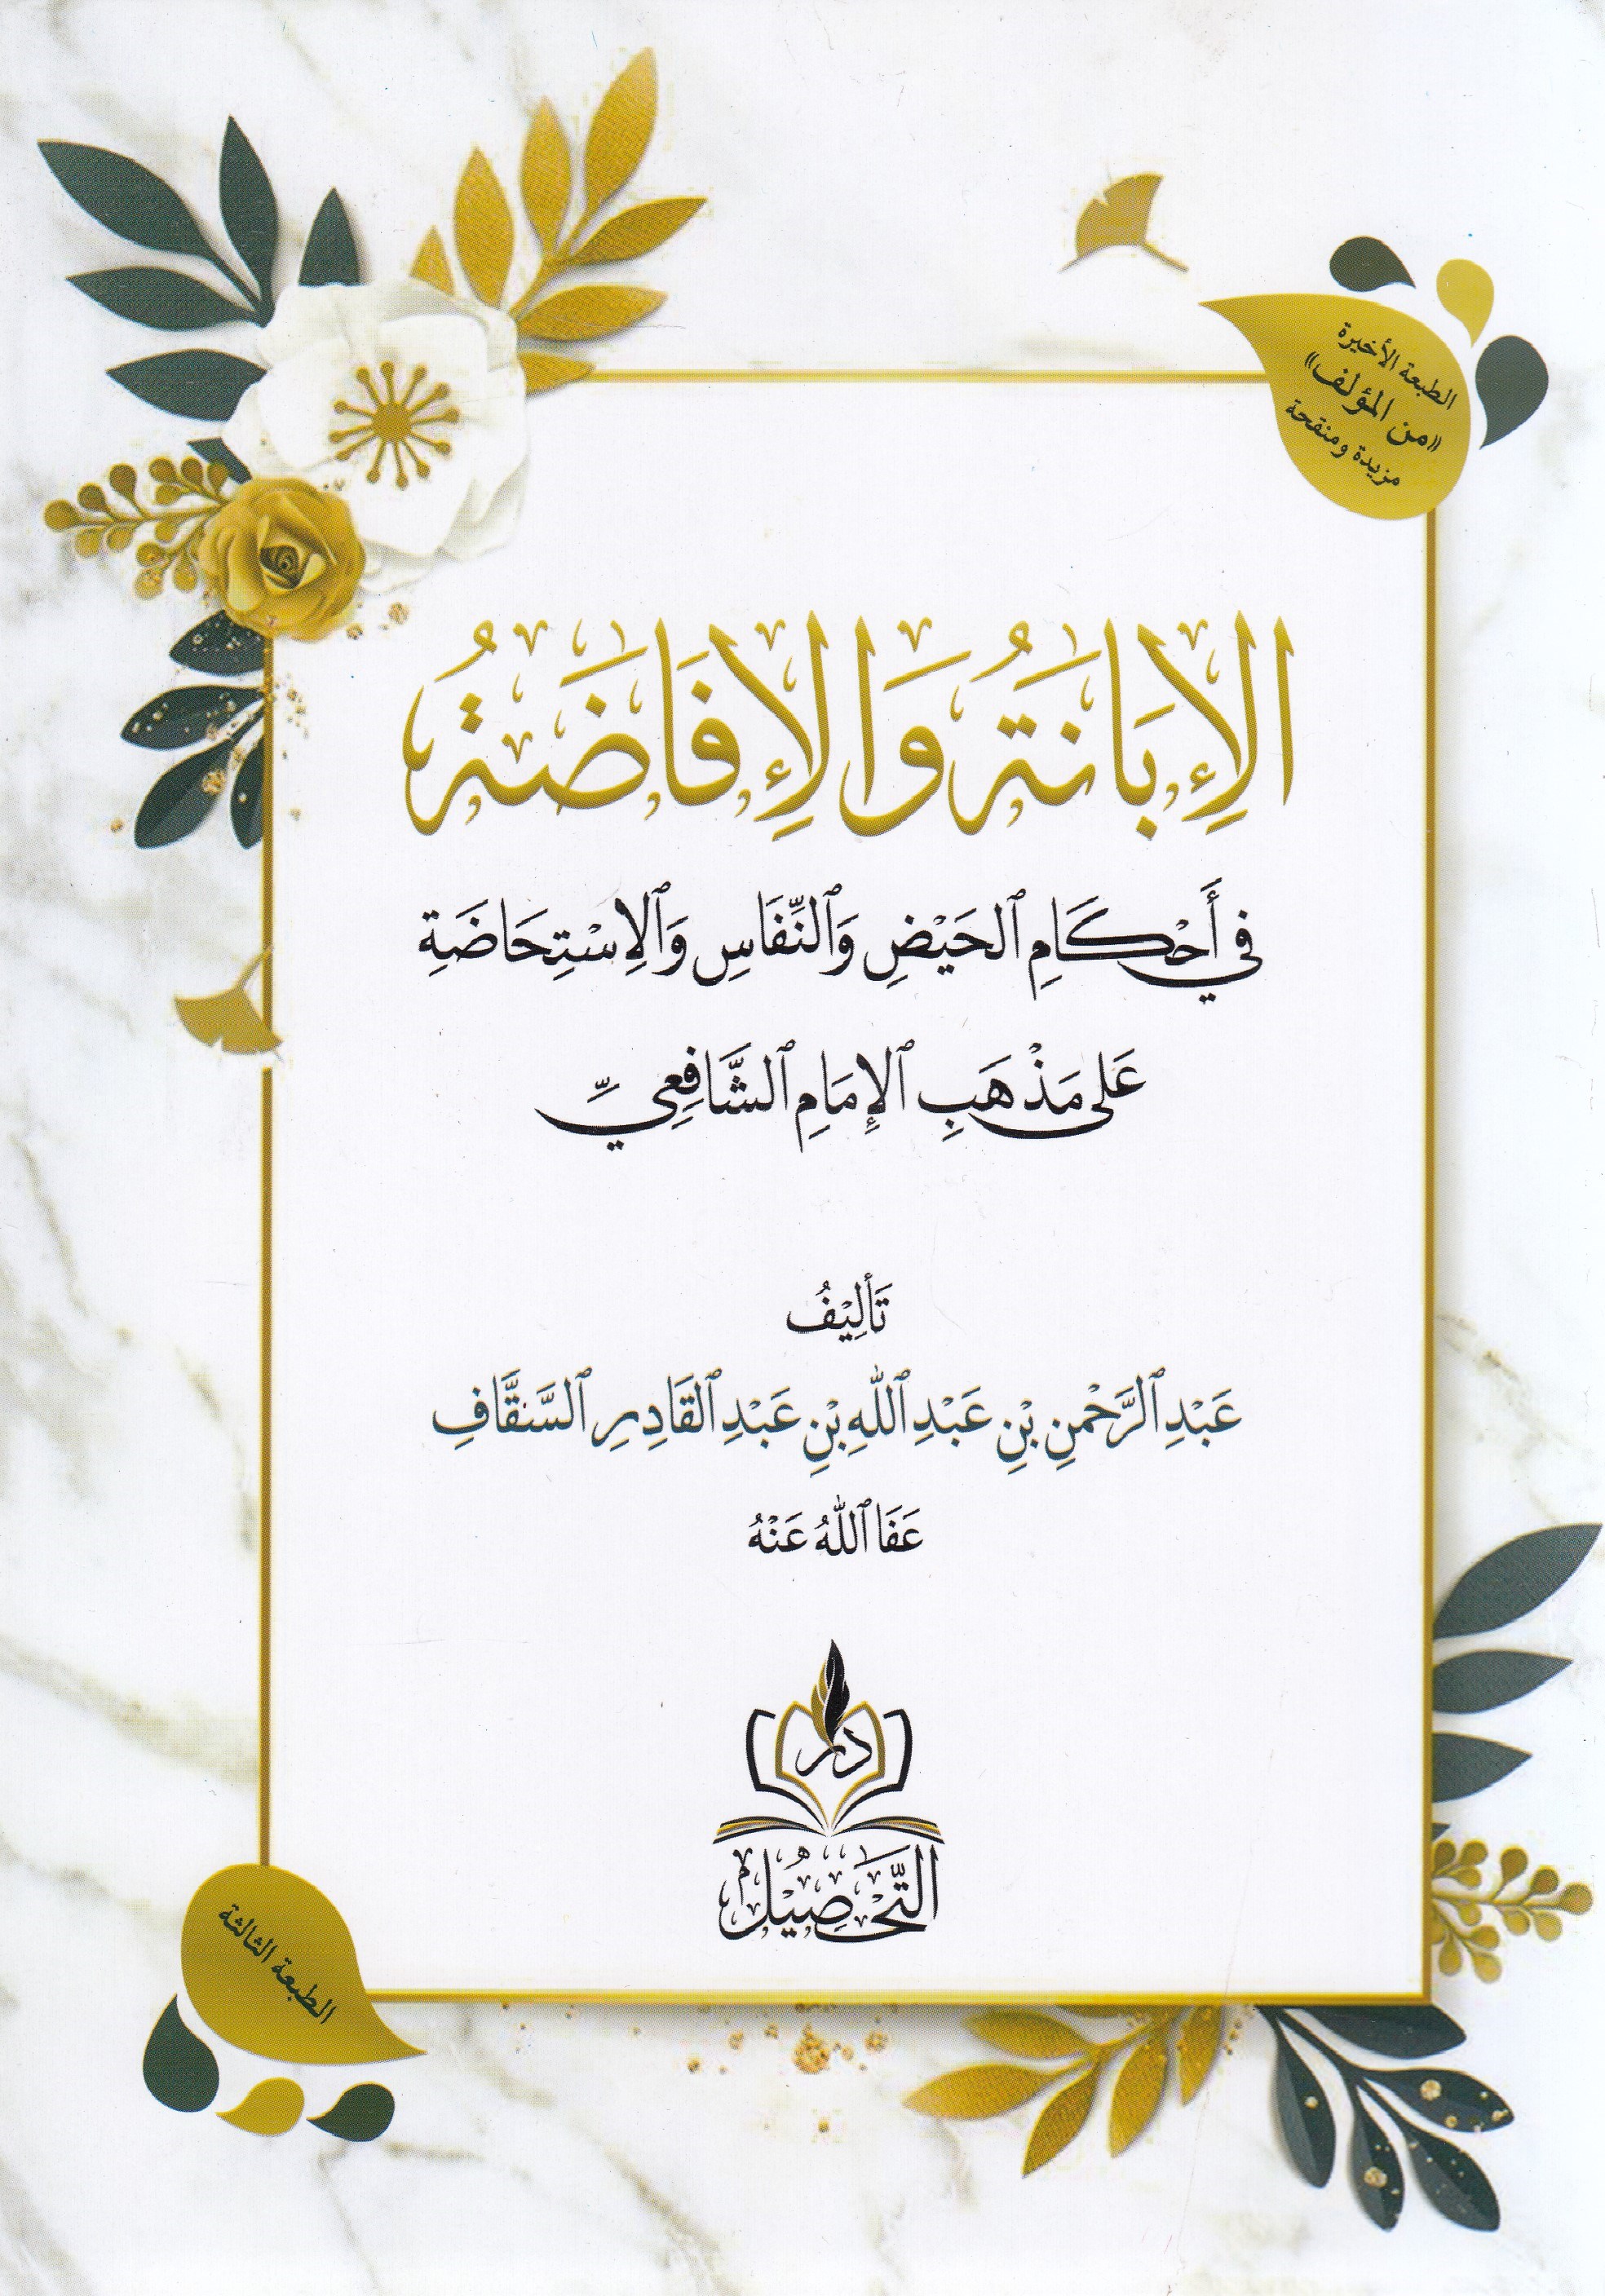 الطبعة الأخيرة
«من المؤلف»
مزيدة ومنقحة
الإِبَانَةُ وَالإِفَاضَةُ
فِي أَحْكَامِ ٱلحَيْضِ وَٱلنِّفَاسِ وَٱلِاسْتِحَاضَةِ
عَلَى مَذْهَبِ ٱلإِمَامِ ٱلشَّافِعِيِّ
تَأْلِيْفُ
عَبْدِ ٱلرَّحْمٰنِ بْنِ عَبْدِ ٱللّٰهِ بْنِ عَبْدِ ٱلقَادِرِ ٱلسَّقَّافِ
عَفَا ٱللّٰهُ عَنْهُ
دار
التَّحْصِيْل
الطبعة الثالثة